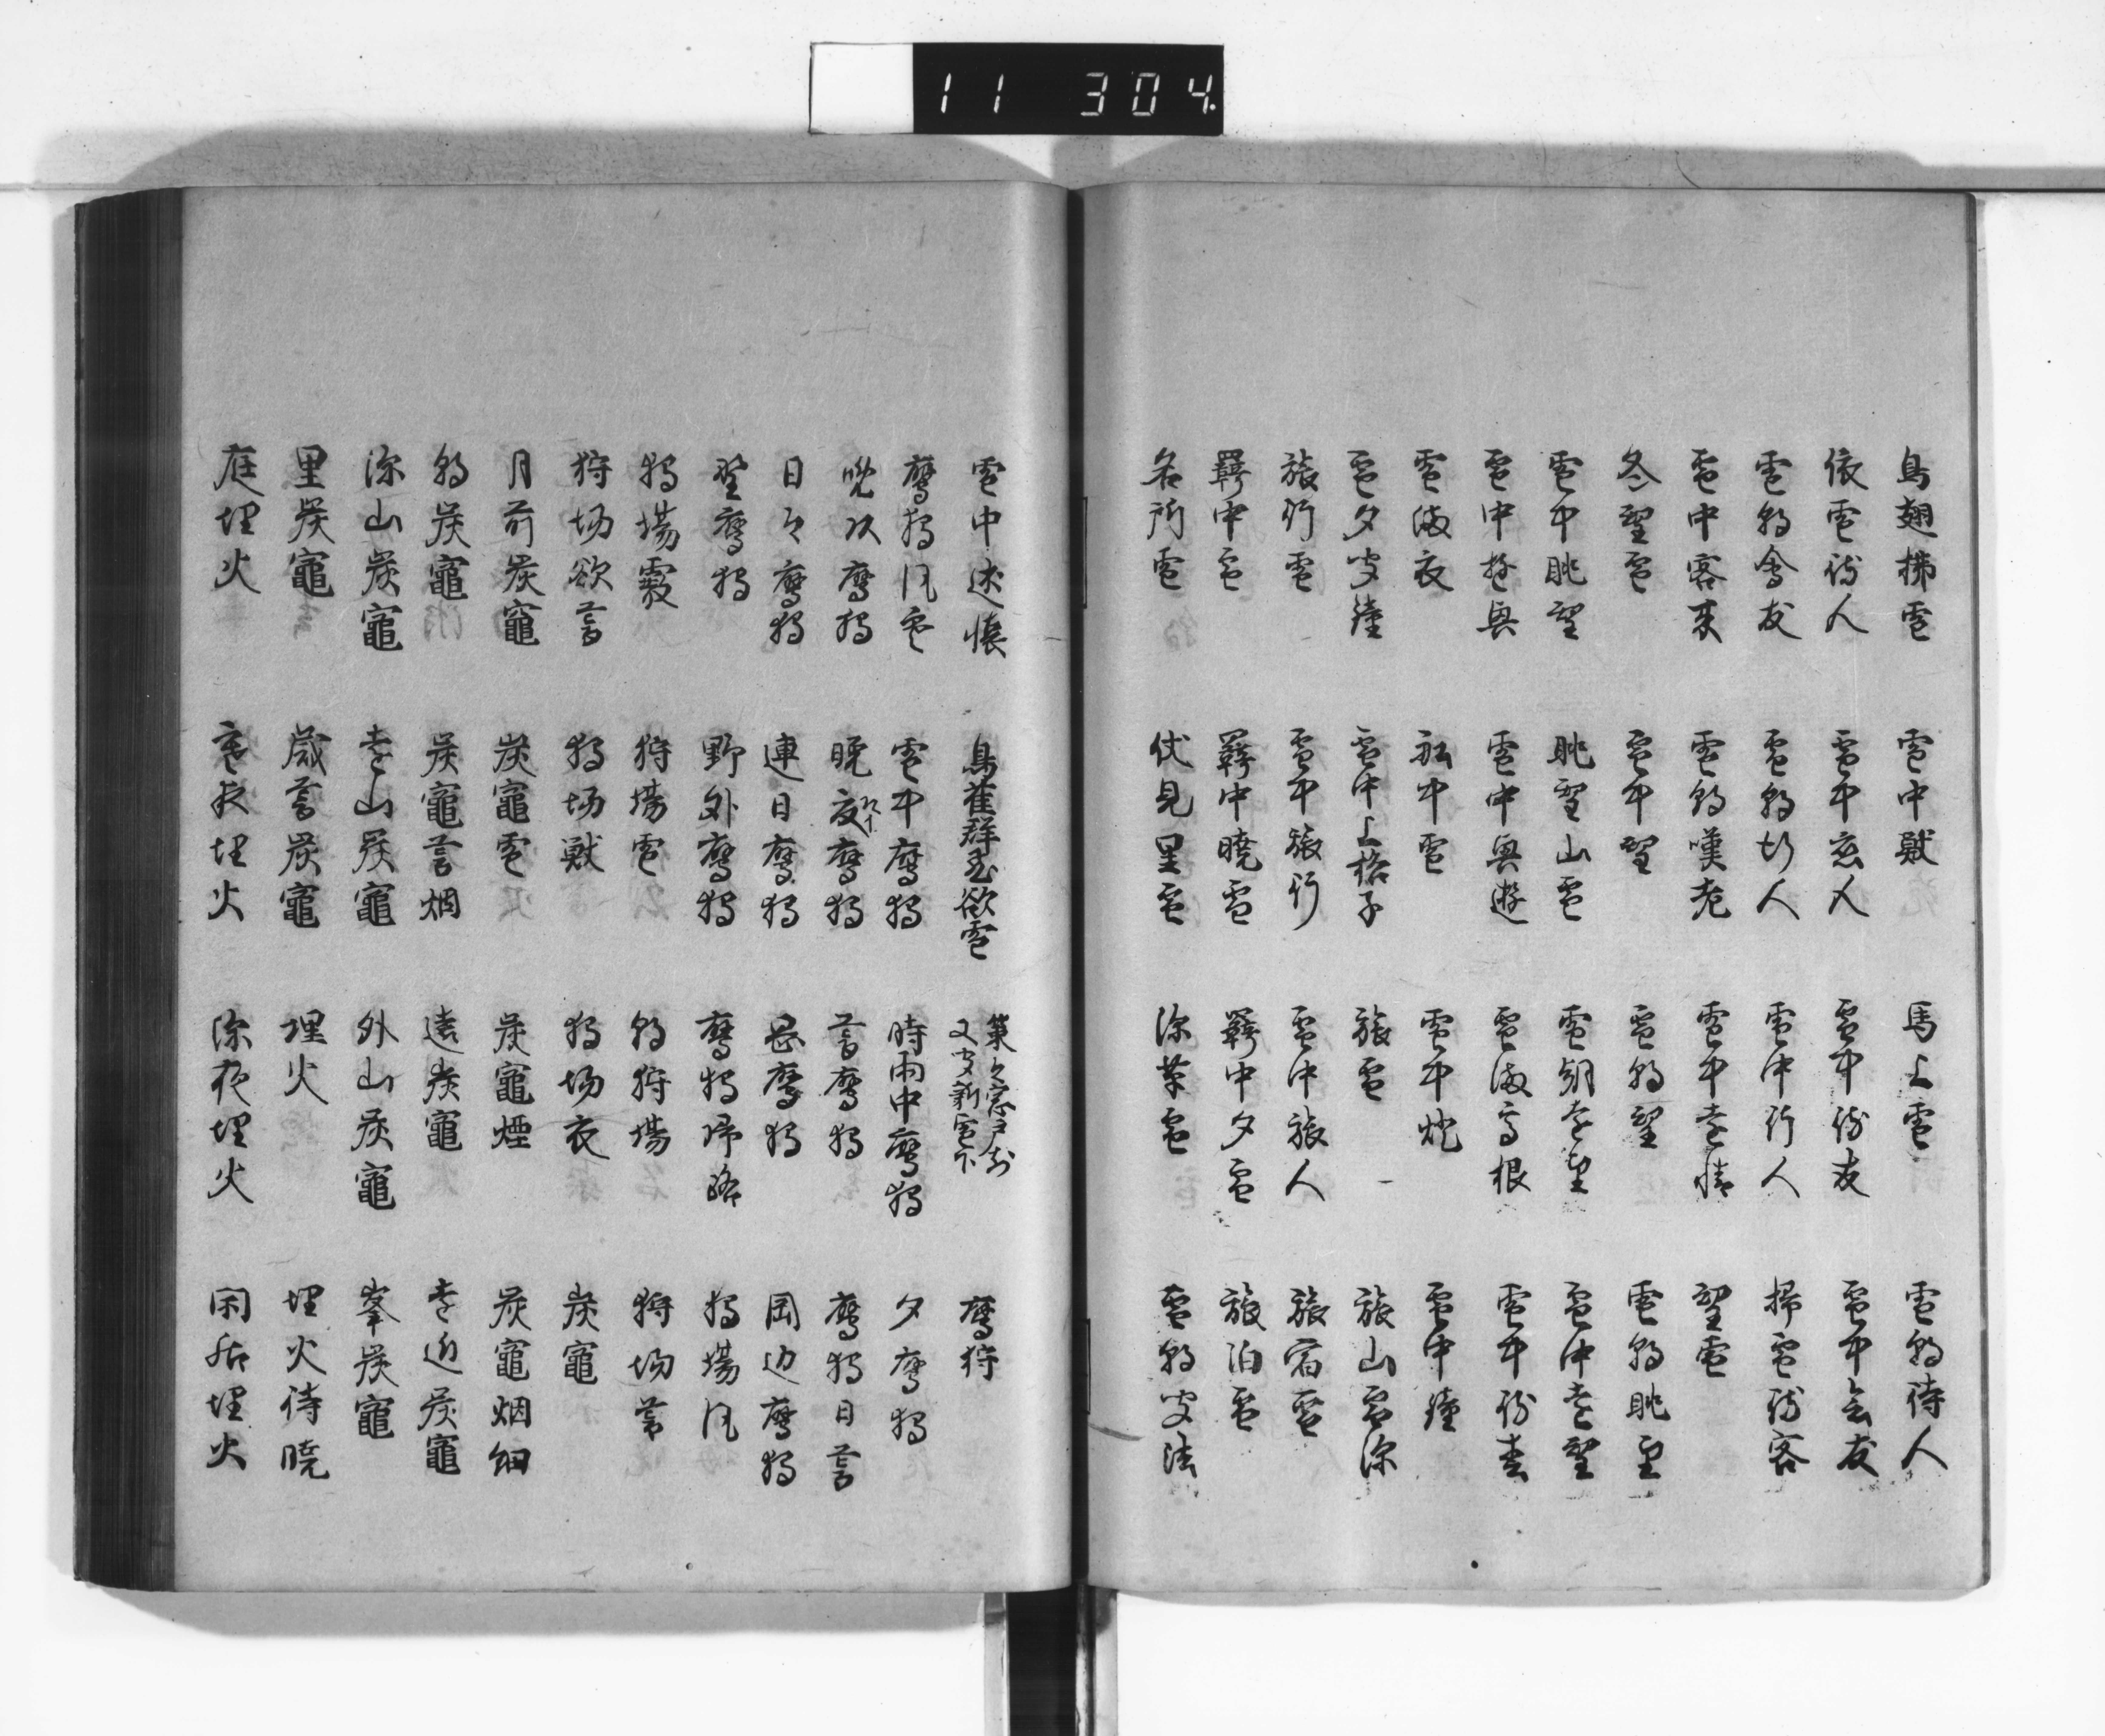 11 304.
鳥翅拂雪 雪中獣 馬上雪 雪朝待人
依雪待人 雪中恋人 雪中待友 雪中会友
雪朝会友 雪朝訪人 雪中行人 掃雪待客
雪中客来 雪朝嘆老 雪中遠情 望雪
冬望雪 雪中望 雪朝望 雪朝眺望
雪中眺望 眺望山雪 雪朝遠望 雪中遠望
雪中遊興 雪中興遊 雪満高根 雪中待春
雪満衣 船中雪 雪中燈 雪中鐘
雪夕聞鐘 雪中上格子 旅雪 旅山雪深
旅行雪 雪中旅行 雪中旅人 旅宿雪
羇中雪 羇中暁雪 羇中夕雪 旅泊雪
名所雪 伏見里雪 深草雪 雪朝聞法
雪中述懐 鳥雀群飛欲雪 鷹狩
鷹狩風寒 雪中鷹狩 時雨中鷹狩 夕鷹狩
晩頭鷹狩 晩鷹狩 暮鷹狩 鷹狩日暮
日々鷹狩 連日鷹狩 岡鷹狩 岡辺鷹狩
野鷹狩 野外鷹狩 鷹狩帰路 狩場風
狩場霰 狩場雪 朝狩場 狩場暮
狩場欲暮 狩場獣 狩場衣 炭竈
月前炭竈 炭竈雪 炭竈煙 炭竈烟細
朝炭竈 炭竈暮烟 遠炭竈 遠近炭竈
深山炭竈 遠山炭竈 外山炭竈 峯炭竈
里炭竈 歳暮炭竈 埋火 埋火待暁
庭埋火 寒夜埋火 深夜埋火 閑居埋火